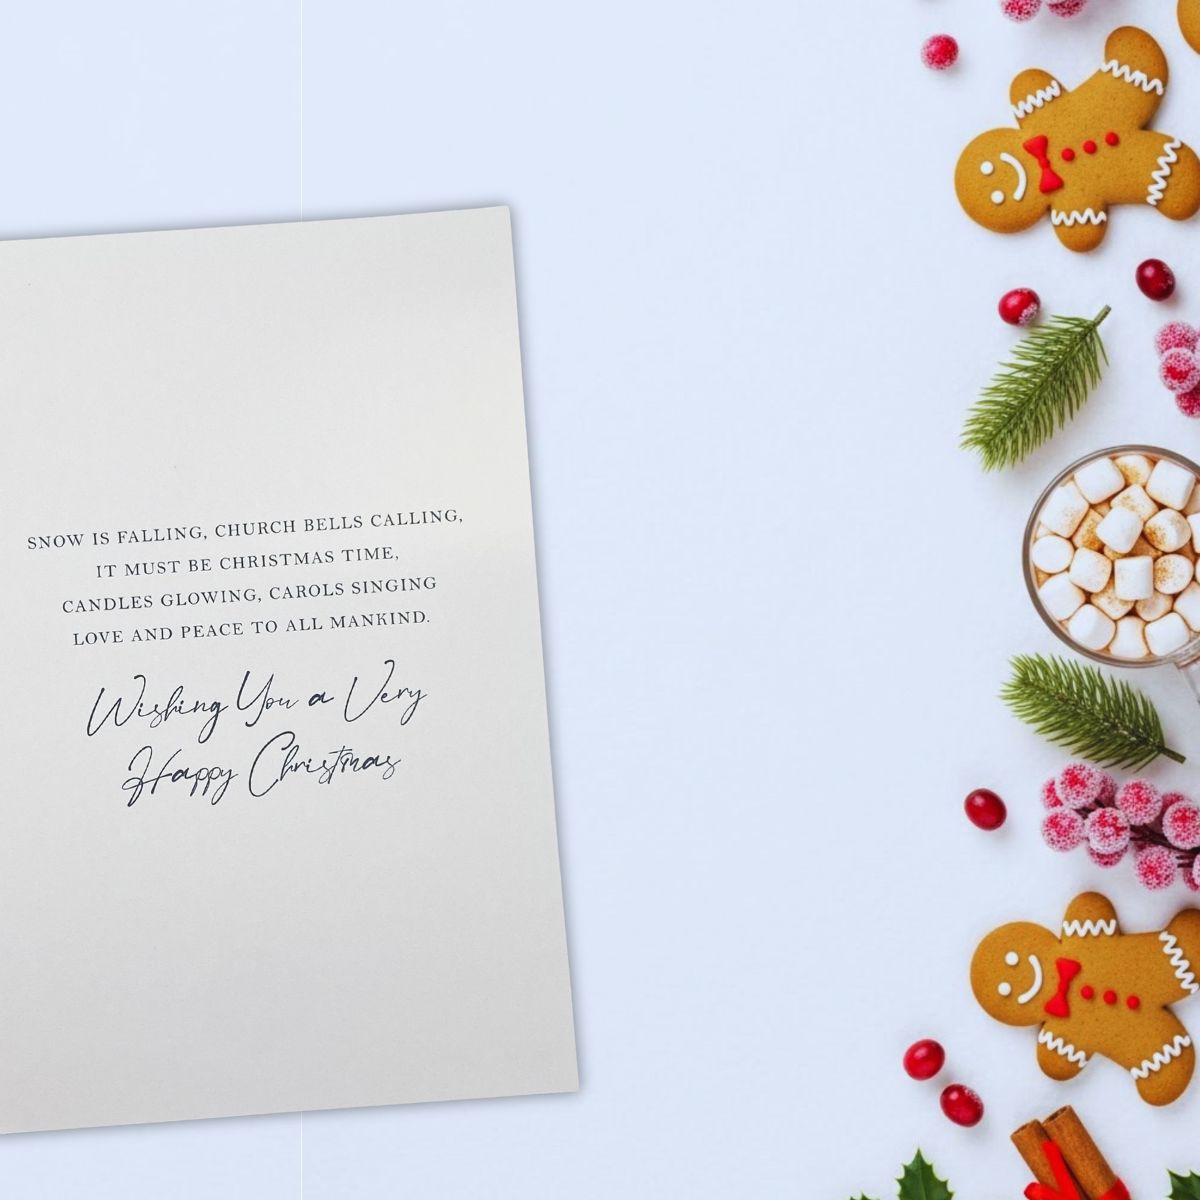 SNOW IS FALLING, CHURCH BELLS CALLING,
IT MUST BE CHRISTMAS TIME,
CANDLES GLOWING, CAROLS SINGING
LOVE AND PEACE TO ALL MANKIND.
Wishing You a Very
Happy Christmas